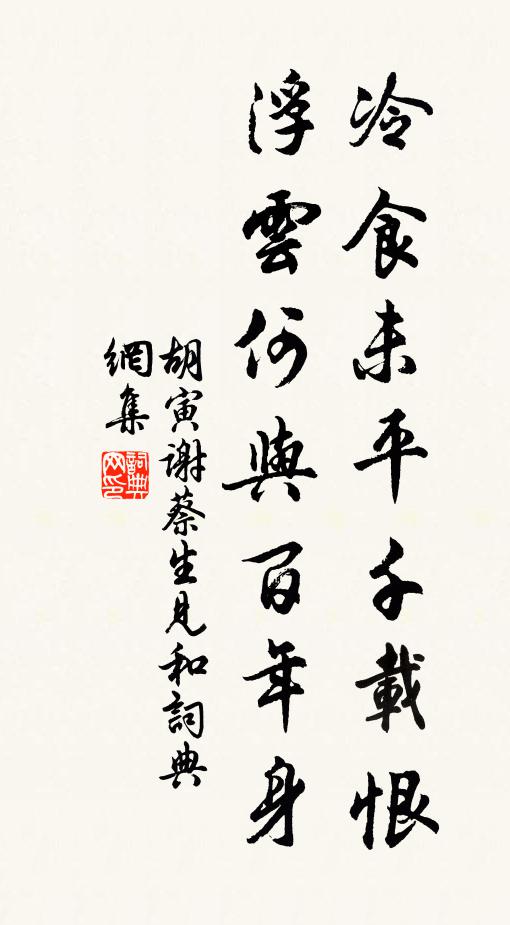 冷食未平千載恨
浮雲何與百年身
胡寅謝蔡生見和詞典
網集
詞典
网印